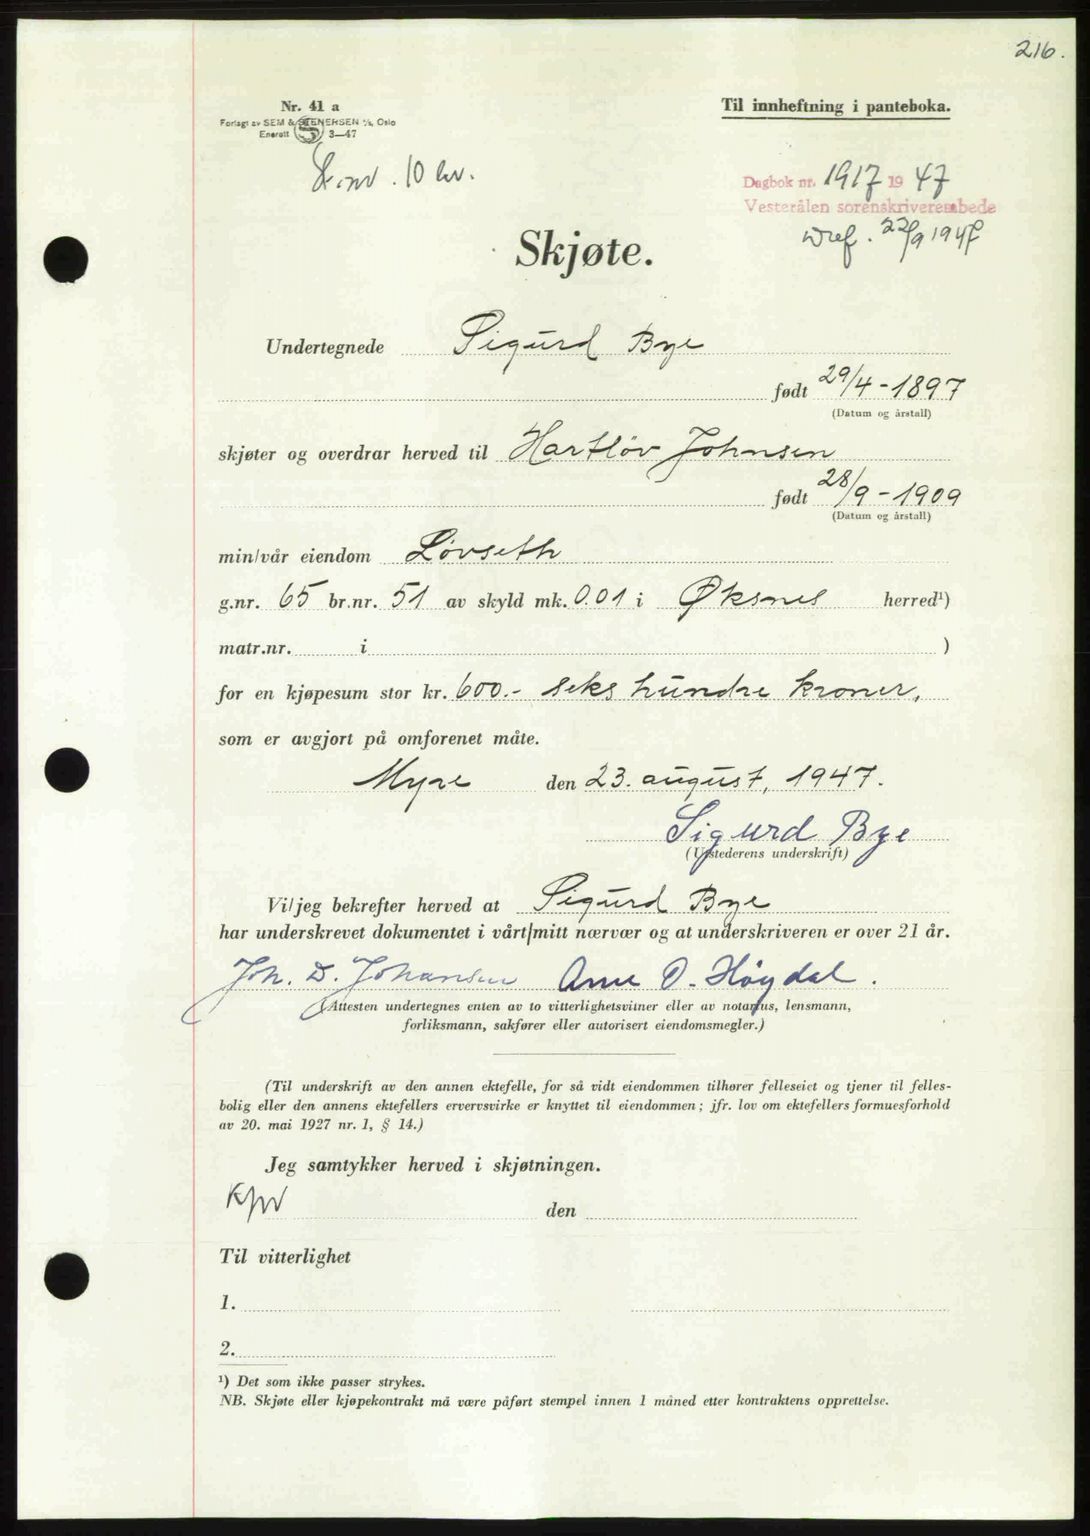 216.
Nr. 41 a
Forlagt av SEM & STENERSEN A/S, Oslo
Enerett S 3—47
Til innheftning i panteboka.
10 kr.
Dagbok nr. 1917 1947
Vesterålen sorenskriverembede
22/9 1947
Skjøte.
Undertegnede Sigurd Bye
født 29/4-1897
(Datum og årstall)
skjøter og overdrar herved til Hartløv Johnsen
født 28/9-1909
(Datum og årstall)
min/vår eiendom Løvseth
g.nr. 65 br.nr. 51 av skyld mk. 0.01 i Øksnes herred¹)
matr.nr. i )
for en kjøpesum stor kr. 600.- seks hundre kroner,
som er avgjort på omforenet måte.
Myre den 23. august, 1947.
Sigurd Bye
(Utstederens underskrift)
Vi/jeg bekrefter herved at Sigurd Bye
har underskrevet dokumentet i vårt/mitt nærvær og at underskriveren er over 21 år.
Joh. D. Johansen Arne O. Høydal.
(Attesten undertegnes enten av to vitterlighetsvitner eller av notarius, lensmann,
forliksmann, sakfører eller autorisert eiendomsmegler.)
(Til underskrift av den annen ektefelle, for så vidt eiendommen tilhører felleseiet og tjener til felles-
bolig eller den annens ektefellers ervervsvirke er knyttet til eiendommen; jfr. lov om ektefellers formuesforhold
av 20. mai 1927 nr. 1, § 14.)
Jeg samtykker herved i skjøtningen.
den
Til vitterlighet
1.
2.
¹) Det som ikke passer strykes.
NB. Skjøte eller kjøpekontrakt må være påført stempel innen 1 måned etter kontraktens opprettelse.